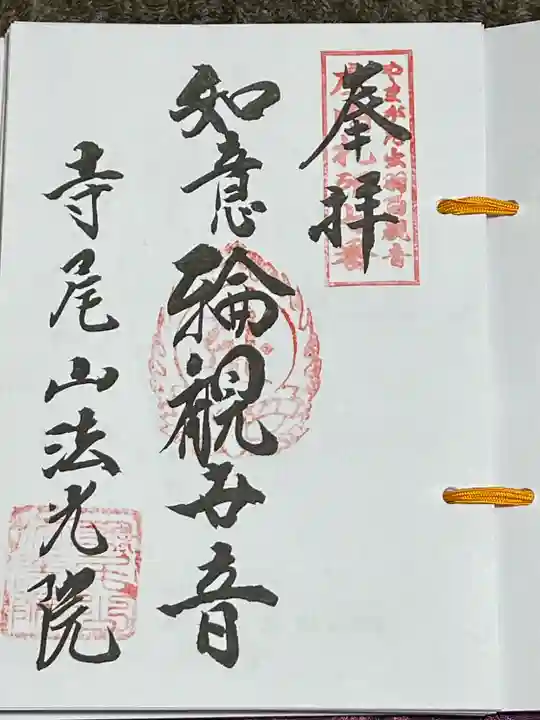 やまがた出羽百観音
奉拝
如意輪観世音
寺尾山法光院